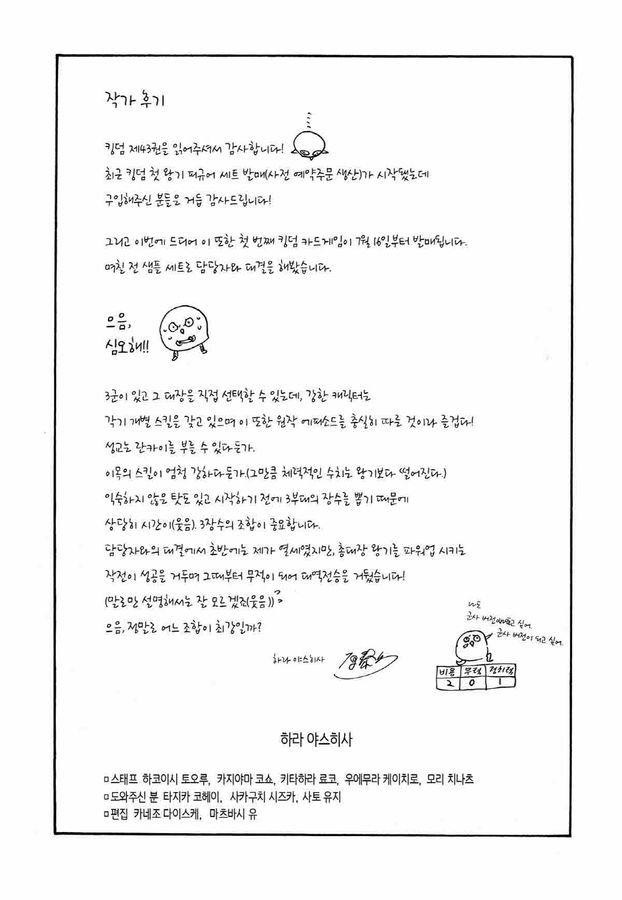 작가 후기
킹덤 제43권을 읽어주셔서 감사합니다!
최근 킹덤 첫 왕기 피규어 세트 발매(사전 예약주문 생산)가 시작됐는데
구입해주신 분들은 거듭 감사드립니다!
그리고 이번에 드디어 이 또한 첫 번째 킹덤 카드게임이 7월 16일부터 발매됩니다.
며칠 전 샘플 세트로 담당자와 대결을 해봤습니다.
으음,
심오해!!
3군이 있고 그 대장을 직접 선택할 수 있는데, 강한 캐릭터는
각기 개별 스킬을 갖고 있으며 이 또한 원작 에피소드를 충실히 따른 것이라 즐겁다!
성교는 란카이를 부를 수 있다든가.
이목의 스킬이 엄청 강하다든가.(그만큼 체력적인 수치는 왕기보다 떨어진다.)
익숙하지 않은 탓도 있고 시작하기 전에 3부대의 장수를 뽑기 때문에
상당히 시간이(웃음). 3장수의 조합이 중요합니다.
담당자와의 대결에서 초반에는 제가 열세였지만, 총대장 왕기를 파워업 시키는
작전이 성공을 거두며 그때부터 무적이 되어 대역전승을 거뒀습니다!
(말로만 설명해서는 잘 모르겠죠(웃음))
으음, 정말로 어느 조합이 최강일까?
나도
군사 버전이 되고 싶어.
하라 야스히사
비용 무력 정치력
2 0 1
하라 야스히사
□스태프 하코이시 토오루, 카지야마 코쇼, 키타하라 료코, 우에무라 케이치로, 모리 치나츠
□도와주신 분 타지카 코헤이, 사카구치 시즈카, 사토 유지
□편집 카네조 다이스케, 마츠바시 유